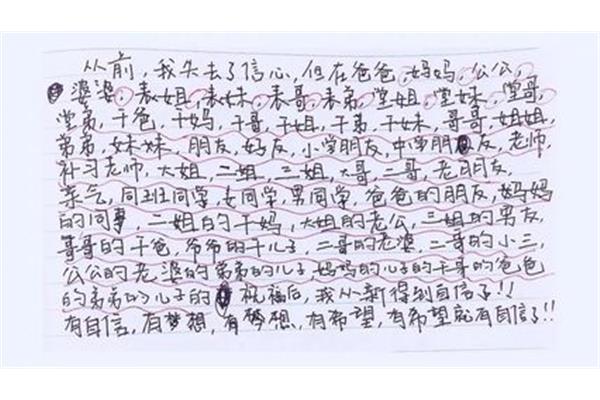 从前，我失去了信心，但在爸爸，妈妈，公公，
婆婆，表姐，表妹，表哥，表弟，堂姐，堂妹，堂哥，
堂弟，干爸，干妈，干哥，干姐，干弟，干妹，哥哥，姐姐，
弟弟，妹妹，朋友，好友，小学朋友，中学朋友，老师，
补习老师，大姐，二姐，三姐，大哥，二哥，老朋友，
亲气，同班同学，女同学，男同学，爸爸的朋友，妈妈
的同事，二姐的干妈，大姐的老公，三姐的男友，
哥哥的干爸，爷爷的干儿子，二哥的老婆，二哥的小三，
公公的老婆的弟弟的儿子，妈妈的儿子的干哥的爸爸
的弟弟的儿子的祝福后，我从新得到自信了!!
有自信，有梦想，有梦想，有希望，有希望就有自信了!!